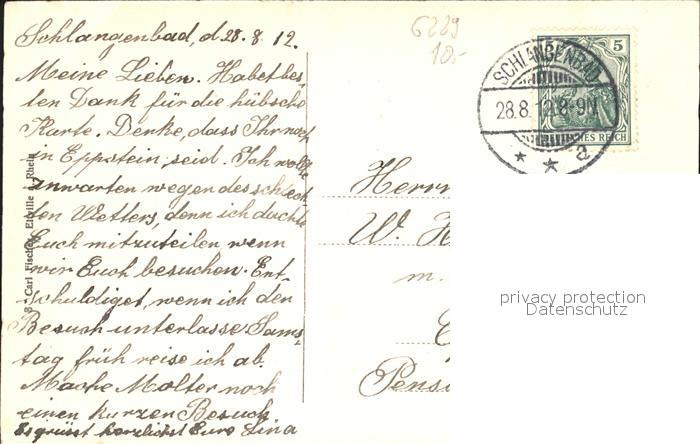 Schlangenbad, d 28. 8. 12.
Meine Lieben. Habet bes-
ten Dank für die hübsche
Karte. Denke, dass Ihr noch
in Eppstein seid. Ich wollte
anwarten wegen des schlech-
ten Wetters, denn ich dachte
Euch mitzuteilen wenn
wir Euch besuchen. Ent-
schuldiget, wenn ich den
Besuch unterlasse Sams-
tag früh reise ich ab.
Mache Molter noch
einen kurzen Besuch
Es grüsst herzlichst Eure Lina
Carl Fischer, Eltville a. Rhein
6229
10.-
5
DEUTSCHES REICH
SCHLANGENBAD
28.8. 12.8-9N
* * a
Herrn
W. H
m.
Pensi
privacy protection
Datenschutz